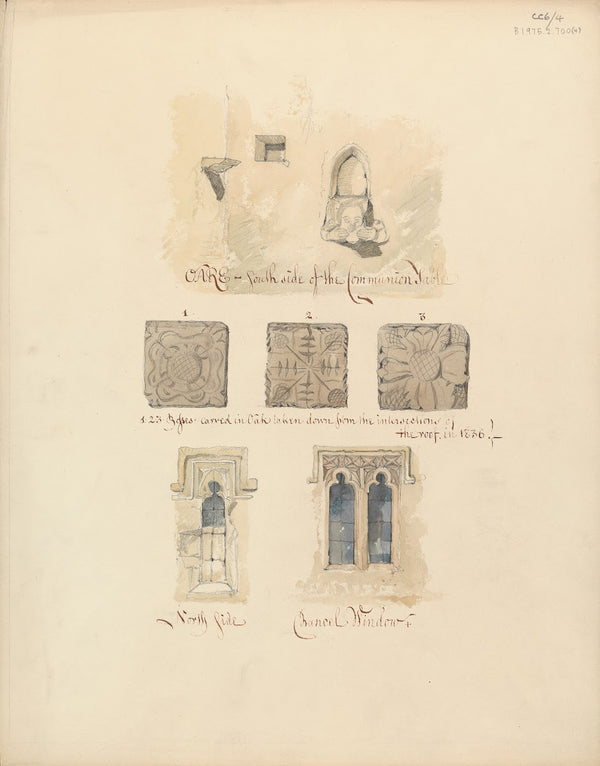 CC6/4
B1975.2.700(4)
OARE - South side of the Communion Table
1. 2. 3
1.2.3. Bosses carved in Oak taken down from the intersections of
the roof, in 1836.
North Side
Chancel Window